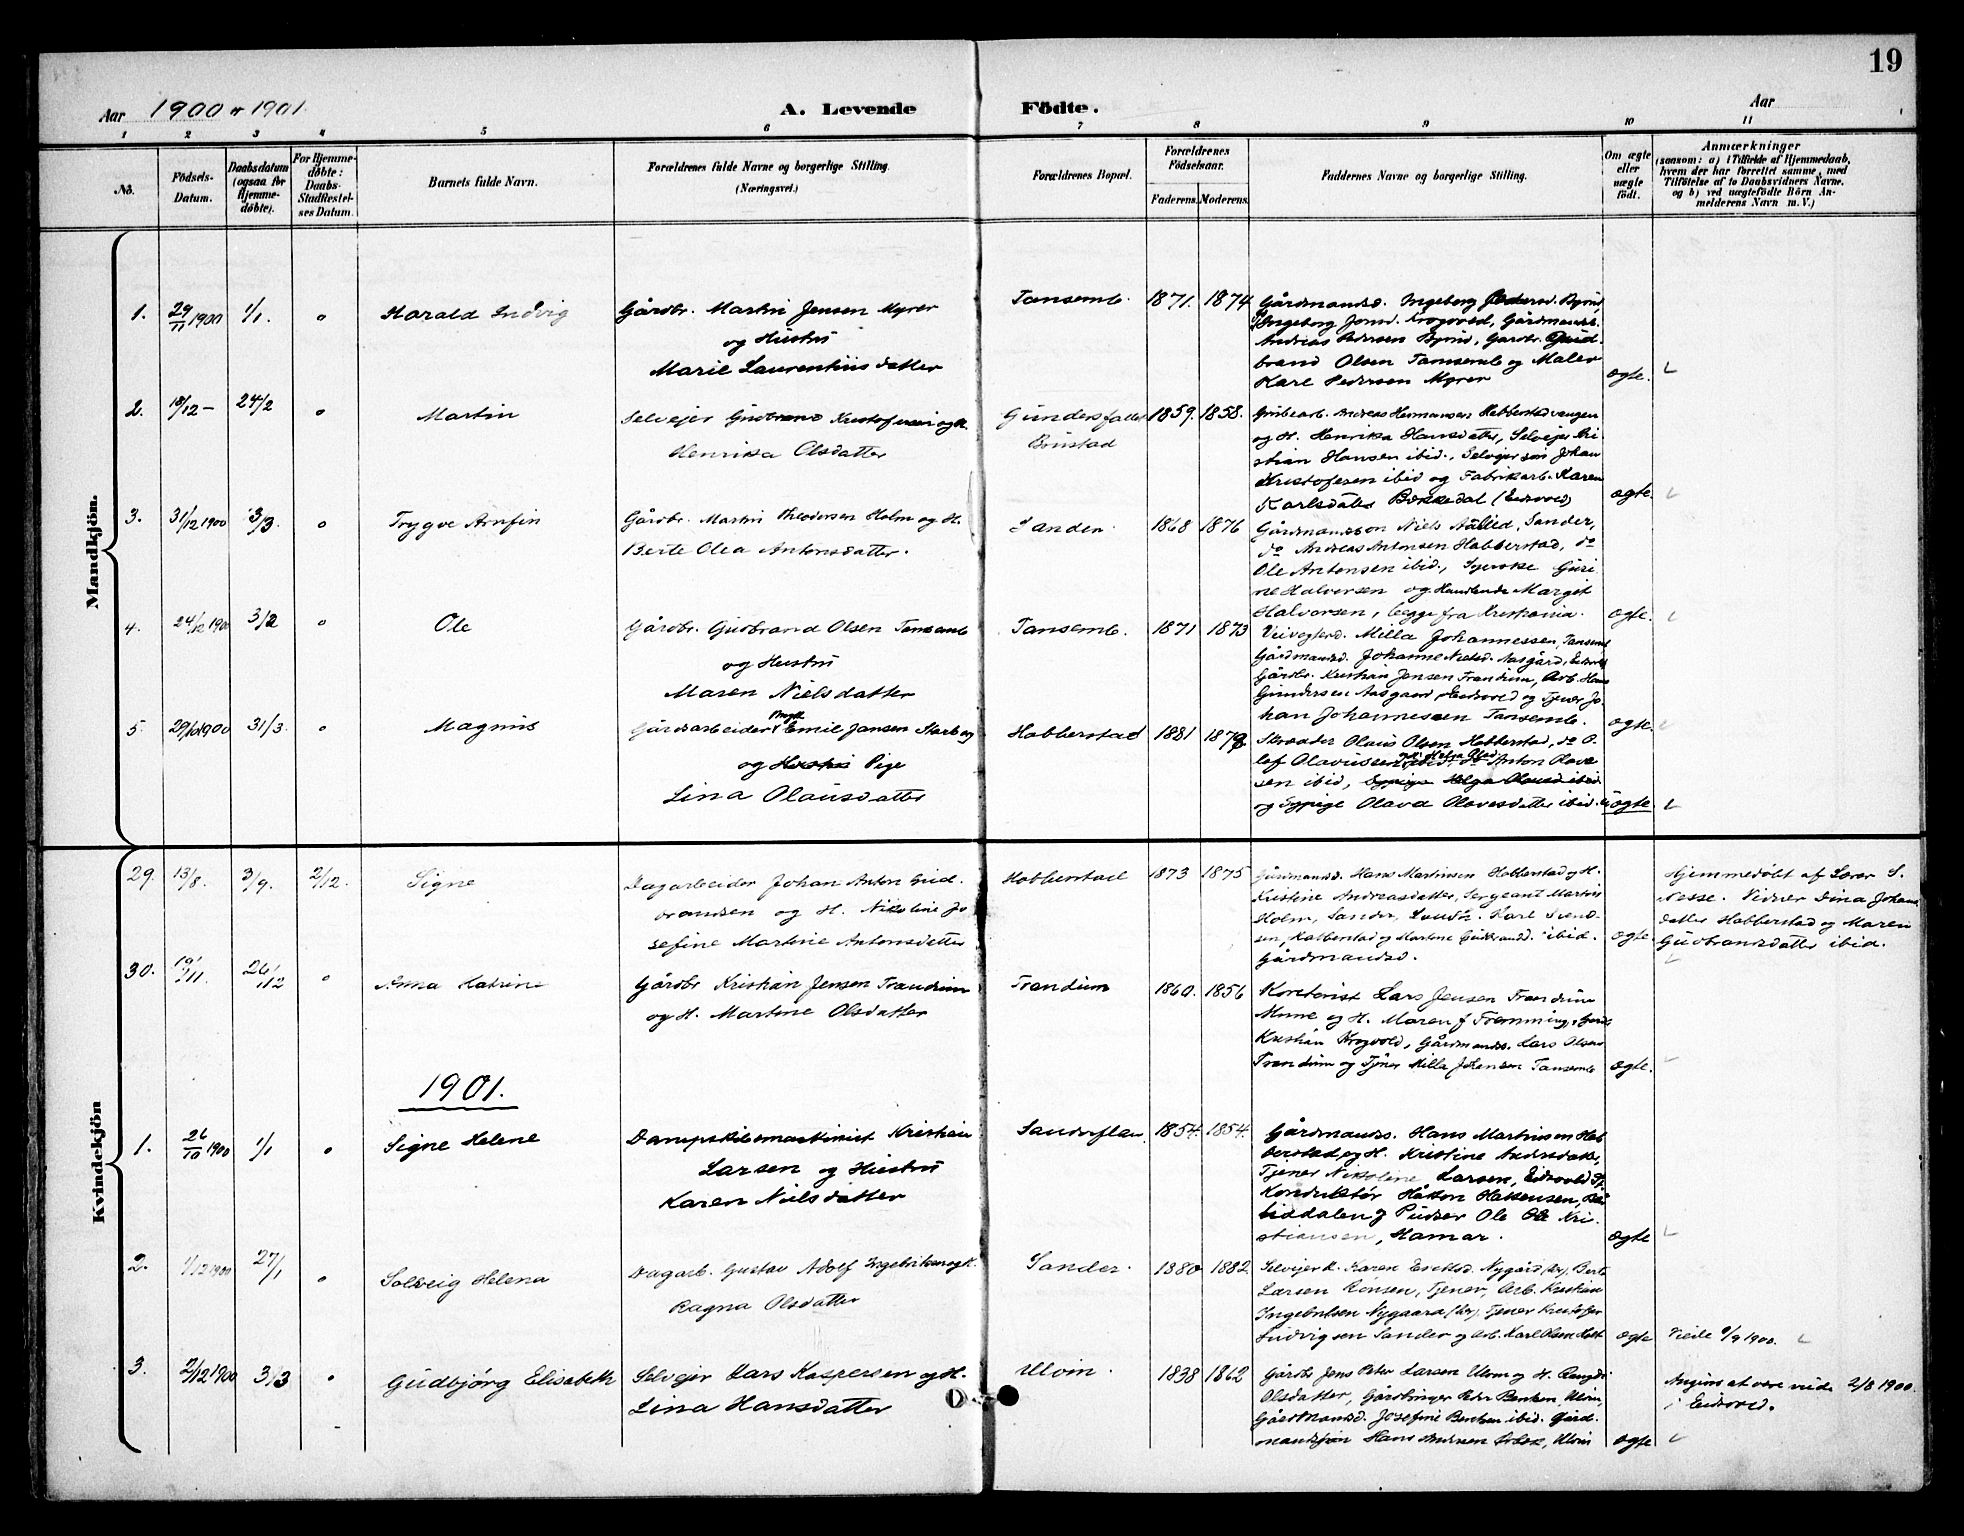 19
Aar 1900 og 1901. A. Levende Födte. Aar
1 2 3 4 5 6 7 8 9 10 11
No. Födsels-Datum. Daabsdatum (ogsaa for Hjemmedøbte). For Hjemmedøbte: Daabs-Stadfæstelses Datum. Barnets fulde Navn. Forældrenes fulde Navne og borgerlige Stilling. (Næringsvei.) Forældrenes Bopæl. Forældrenes Födselsaar. Faderens. Moderens. Faddernes Navne og borgerlige Stilling. Om ægte eller uægte født. Anmærkninger (saasom: a) i Tilfælde af Hjemmedaab, hvem der har forrettet samme, med Tilföielse af to Daabsvidners Navne, og b) ved uægtefødte Börn Anmelderens Navn m. V.)
Mandkjön.
1. 29/11 1900 1/1. " Harald Indvig
Gårdbr. Martin Jensen Myrer
og Hustru
Marie Laurentiusdatter
Tansemb. 1871. 1874
Gårdmandsd. Ingeborg Pedersd. Byrud,
Ingeborg Jonsd. Krogvold, Gårdmands.
Andreas Pedersen Byrud, Gårdbr. Gud-
brand Olsen Tansemb og Maler
Karl Pedersen Myrer
ægte.
2. 18/12 – 24/2 " Martin
Selveier Gudbrand Kristofersen og H.
Henrika Olsdatter
Gundersfallet
Brustad
1859. 1858.
Grubearb. Andreas Hermansen Habberstadvangen
og H. Henrika Hansdatter, Selveier Kri-
stian Hansen ibid., Selveiersøn Johan
Kristofersen ibid og Fabrikarb. Karen
Karlsdatter Bækkedal (Eidsvold)
ægte.
3. 31/12 1900 3/3. " Trygve Arnfin
Gårdbr. Martin Theodersen Holm og H.
Berte Olea Antonsdatter.
Sander. 1868 1876
Gårdmandssøn Niels Aalied, Sander,
do Andreas Antonsen Habberstad, do
Ole Antonsen ibid., Syerske Guri-
ne Halvorsen og Handlende Margit
Halvorsen, begge fra Kristiania.
ægte.
4. 24/12 1900 3/2 " Ole
Gårdbr. Gudbrand Olsen Tansemb
og Hustru
Maren Nielsdatter
Tansemb. 1871 1873
Veivogterd. Milla Johannessen, Tansemb
Gårdmandsd. Johanne Nielsd. Aasgård, Eidsvold
Gårdbr. Kristian Jensen Trandum, Arb. Hans
Gundersen Aasgaard, Eidsvold og Tjener Jo-
han Johannesen Tansemb.
ægte.
5. 29/10 1900 31/3. " Magnus
Gårdsarbeider Emil Jansen
og Hustru Pige
Lina Olausdatter
Habberstad 1881 1878
Skrædder Olaus Olsen Habberstad, do O-
laf Olavussen Anton Olave-
sen ibid, Sypige Helga Olausd ibid
og Sypige Olava Olavesdatter ibid.
uægte.
Kvindekjön
29. 13/8. 3/9. 2/12. Signe
Dagarbeider Johan Anton Gud-
brandsen og H. Nikoline Jo-
sefine Martine Antonsdatter
Habberstad 1873 1875
Gårdmandsd. Hans Martinsen Habberstad og H.
Kristine Andreasdatter, Sergeant Martin
Holm, Sander, Landh. Karl Svend-
sen, Habberstad og Martine Gudbrandsd. ibid.
Gårdmandsd.
ægte.
Hjemmedøbt af Lærer S.
Nesse. Vidner Dina Johans-
datter Habberstad og Maren
Gudbrandsdatter ibid.
30. 19/11. 26/12 " Anna Katrine
Gårdbr Kristian Jensen Trandum
og H. Martine Olsdatter
Trandum 1860. 1856
Lars Jensen Trandum
og H. Maren
Kristian Krogvold, Gårdmands. Lars Olsen
Trandum og Tjener Milla Johansen Tansemb
ægte.
1901.
1. 26/10 1900 1/1 " Signe Helene
Dampskibsmaskinist Kristian
Larsen og Hustru
Karen Nielsdatter
Sanderflau. 1854. 1854.
Gårdmands. Hans Martinsen Hab-
berstad og H. Kristine Andersdatter,
Tjener Nikoline Larsen, Eidsvold
Konduktør Håkon Hakensen,
Pudser Ole Ole Kri-
stiansen, Hamar.
ægte
2. 1/12 1900 27/1 " Solveig Helena
Dagarb. Gustav Adolf Ingebriktsen og H.
Ragna Olsdatter
Sander. 1880 1882.
Selveier K. Karen Nygård, Berte
Larsen Rønsen, Tjener, Arb. Kristian
Ingebritsen Nygaard, Tjener Kristofer
Ludvigsen Sander og Arb. Karl Olsen
ægte
Viede 9/9 1900.
3. 2/12 1900 3/3 " Gudbjørg Elisabeth
Selveier Lars Kaspersen og H.
Lina Hansdatter
Ulvin. 1838 1862
Gårdbr Jens Peter Larsen Ulvin og H.
Olsdatter, Peder Bentsen, Ulvin,
Gårdmandsd. Josefine Bentsen ibid. Gård-
mandssøn Hans Andersen Ulvin
ægte
Angives at være viede 2/8 1900.
i Eidsvold.